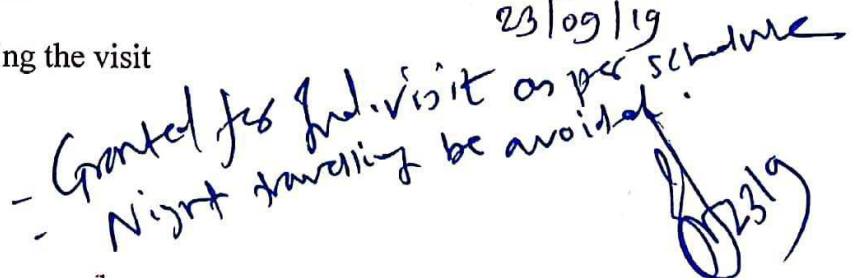 23/09/19
ng the visit
- Granted for Ind. visit as per schedule
- Night travelling be avoided.
23/9